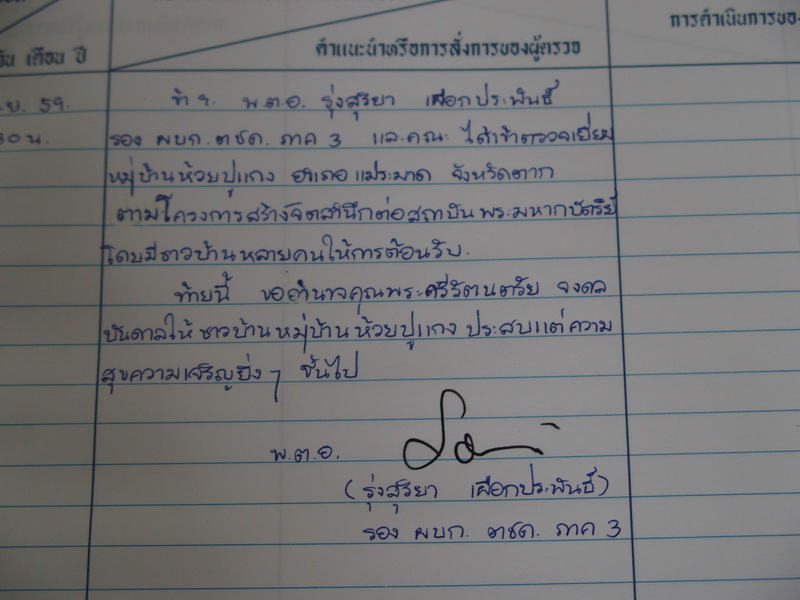 วัน เดือน ปี
คำแนะนำหรือการสั่งการของผู้ตรวจ
การดำเนินการของ
ย. 59.
30 น.
ข้า ฯ พ.ต.อ. รุ่งสุริยา เผือกประพันธ์
รอง ผบก. ตชด. ภาค 3 และคณะ ได้เข้าตรวจเยี่ยม
หมู่บ้านห้วยปูแกง อำเภอแม่ระมาด จังหวัดตาก
ตามโครงการสร้างจิตสำนึกต่อสถาบันพระมหากษัตริย์
โดยมีชาวบ้านหลายคนให้การต้อนรับ.
ท้ายนี้ ขออำนาจคุณพระศรีรัตนตรัย จงดล
บันดาลให้ ชาวบ้านหมู่บ้านห้วยปูแกง ประสบแต่ความ
สุขความเจริญยิ่ง ๆ ขึ้นไป
พ.ต.อ.
(รุ่งสุริยา เผือกประพันธ์)
รอง ผบก. ตชด. ภาค 3